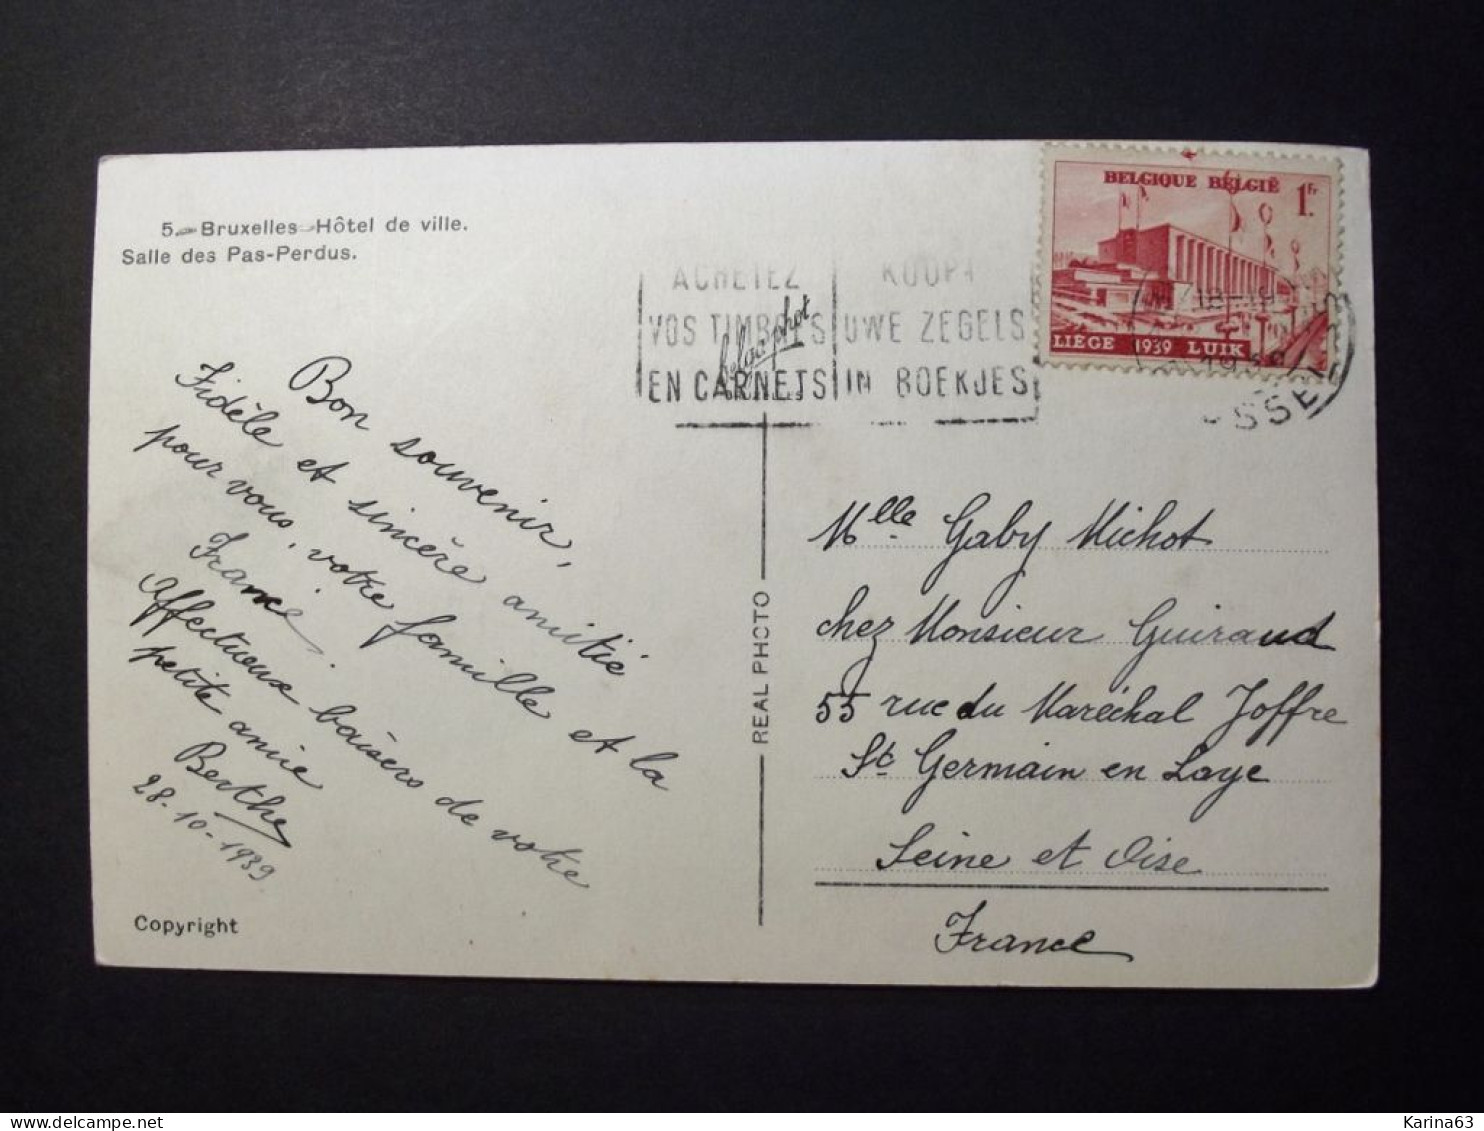 5. - Bruxelles - Hôtel de ville.
Salle des Pas-Perdus.
ACHETEZ
VOS TIMBRES
EN CARNETS
KOOPT
UWE ZEGELS
IN BOEKJES
BELGIQUE BELGIË 1Fr.
LIÈGE 1939 LUIK
Bon souvenir,
Fidèle et sincère amitié
pour vous, votre famille et la
France.
Affectueux baisers de votre
petite amie
Berthe
28-10-1939
Copyright
REAL PHOTO
Mlle Gaby Michot
chez Monsieur Guiraud
55 rue du Maréchal Joffre
St Germain en Laye
Seine et Oise
France
Karina63